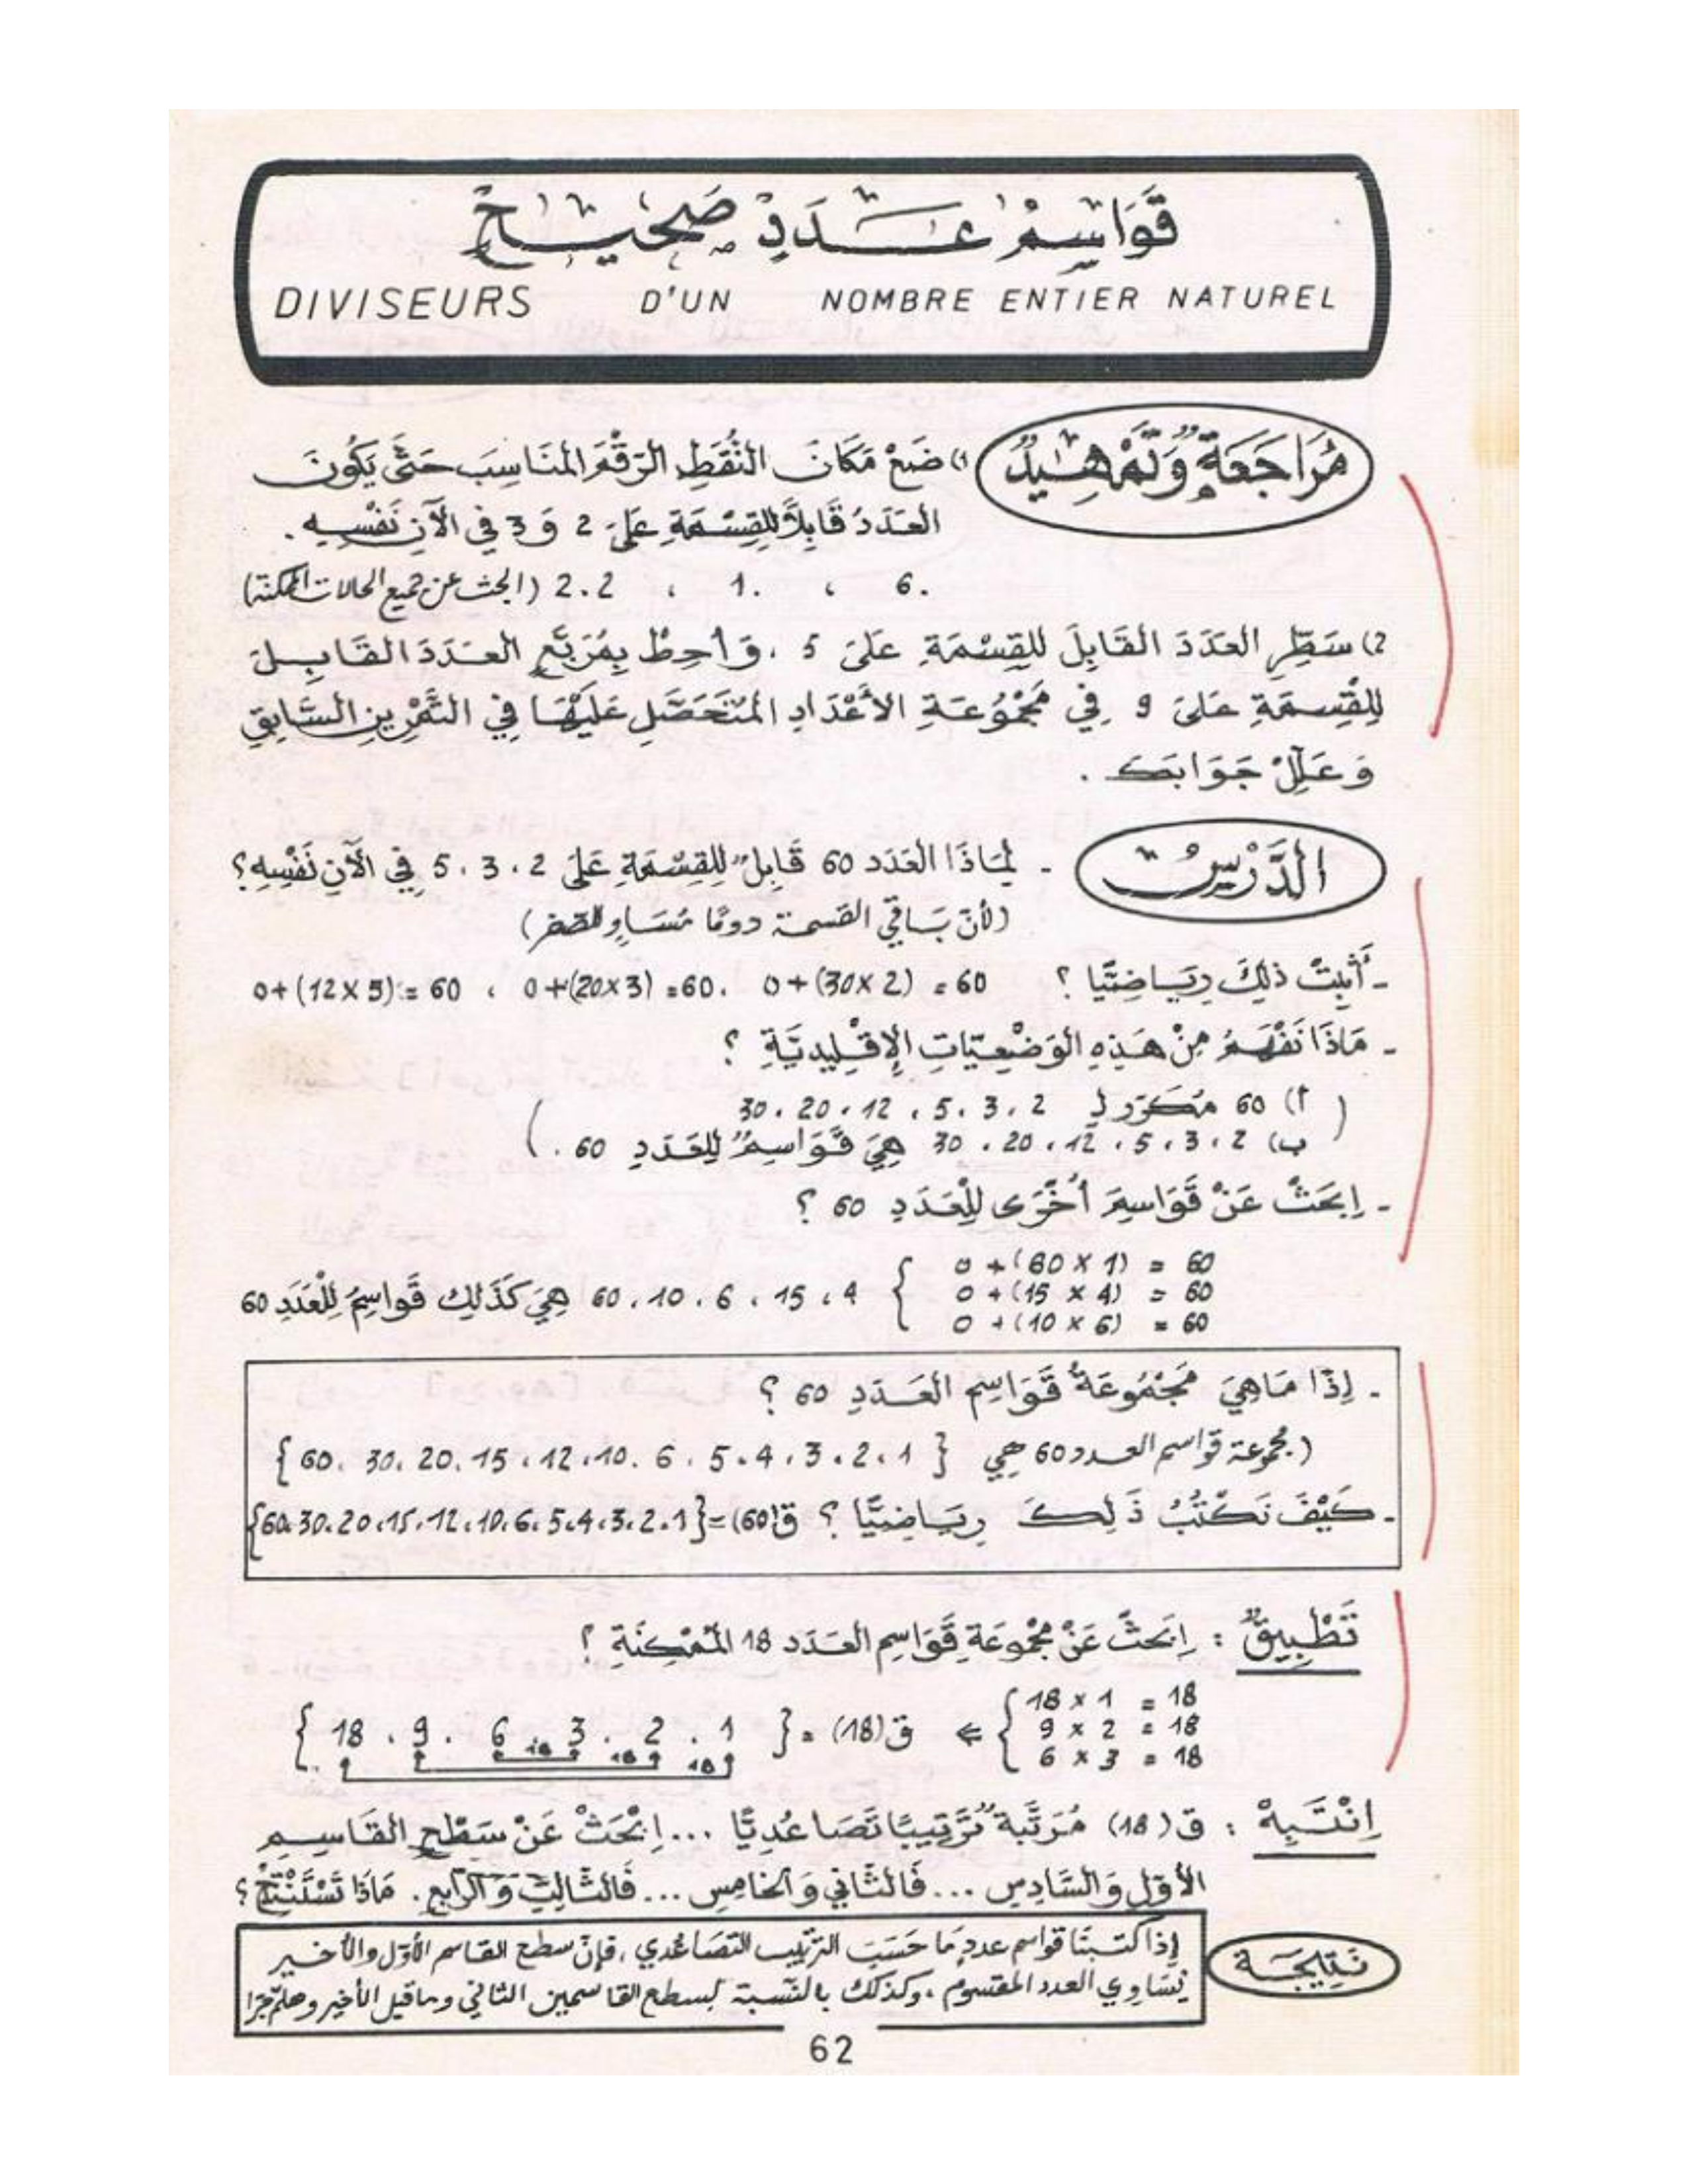 قَوَاسِمُ عَدَدٍ صَحِيحٍ
DIVISEURS D'UN NOMBRE ENTIER NATUREL
مُرَاجَعَةٌ وَتَمْهِيدٌ
1) ضَعْ مَكَانَ النُّقَطِ الرَّقْمَ المُنَاسِبَ حَتَّى يَكُونَ
العَدَدُ قَابِلاً لِلقِسْمَةِ عَلَى 2 وَ 3 فِي الآنِ نَفْسِهِ .
6. ، 1. ، 2.2 (ابحث عن جميع الحالات الممكنة)
2) سَطِّرِ العَدَدَ القَابِلَ لِلقِسْمَةِ عَلَى 5 ، وَأَحِطْ بِمُرَبَّعٍ العَدَدَ القَابِلَ
لِلْقِسْمَةِ عَلَى 9 فِي مَجْمُوعَةِ الأَعْدَادِ المُتَحَصَّلِ عَلَيْهَا فِي التَّمْرِينِ السَّابِقِ
وَعَلِّلْ جَوَابَكَ .
الدَّرْسُ
- لِمَاذَا العَدَد 60 قَابِلٌ لِلقِسْمَةِ عَلَى 2 ، 3 ، 5 فِي الآنِ نَفْسِهِ ؟
(لأنّ بَاقي القسمة دومًا مُسَاوٍ للصفر)
- أَثْبِتْ ذلِكَ رِيَاضِيًّا ؟ 60 = (2 × 30) + 0 ، 60 = (3 × 20) + 0 ، 60 = (5 × 12) + 0
- مَاذَا نَفْهَمُ مِنْ هَذِهِ الوَضْعِيَّاتِ الإِقْلِيدِيَّةِ ؟
( أ) 60 مُكَرَّر لِـ 2 ، 3 ، 5 ، 12 ، 20 ، 30
ب) 2 ، 3 ، 5 ، 12 ، 20 ، 30 هِيَ قَوَاسِمُ لِلعَدَدِ 60 . )
- اِبْحَثْ عَنْ قَوَاسِمَ أُخْرَى لِلْعَدَدِ 60 ؟
60 = (1 × 60) + 0
60 = (4 × 15) + 0
60 = (6 × 10) + 0
} 4 ، 15 ، 6 ، 10 ، 60 هِيَ كَذَلِكَ قَوَاسِمُ لِلْعَدَدِ 60
- إِذًا مَا هِيَ مَجْمُوعَةُ قَوَاسِمِ العَدَدِ 60 ؟
(مجموعة قواسم العدد 60 هي { 1 ، 2 ، 3 ، 4 ، 5 ، 6 ، 10 ، 12 ، 15 ، 20 ، 30 ، 60 }
- كَيْفَ نَكْتُبُ ذَلِكَ رِيَاضِيًّا ؟ ق(60) = {1 ، 2 ، 3 ، 4 ، 5 ، 6 ، 10 ، 12 ، 15 ، 20 ، 30 ، 60}
تَطْبِيقٌ : اِبْحَثْ عَنْ مَجْمُوعَةِ قَوَاسِمِ العَدَدِ 18 المُمْكِنَةِ ؟
18 = 1 × 18
18 = 2 × 9
18 = 3 × 6
⇐ ق(18) = { 1 ، 2 ، 3 ، 6 ، 9 ، 18 }
18 18 18
اِنْتَبِهْ : ق(18) مُرَتَّبَةٌ تَرْتِيبًا تَصَاعُدِيًّا ... اِبْحَثْ عَنْ سَطْحِ القَاسِمِ
الأَوَّلِ وَالسَّادِسِ ... فَالثَّانِي وَالخَامِسِ ... فَالثَّالِثِ وَالرَّابِعِ . مَاذَا تَسْتَنْتِجُ ؟
نَتِيجَة
إِذا كتبنَا قواسم عددٍ مَا حَسَبَ الترتيب التصَاعُدي ، فإنّ سطح القاسم الأوّل والأخير
يُسَاوِي العدد المقسوم ، وكذلك بالنّسبة لسطح القاسمين الثاني وما قبل الأخير وهلمّ جرّا
62